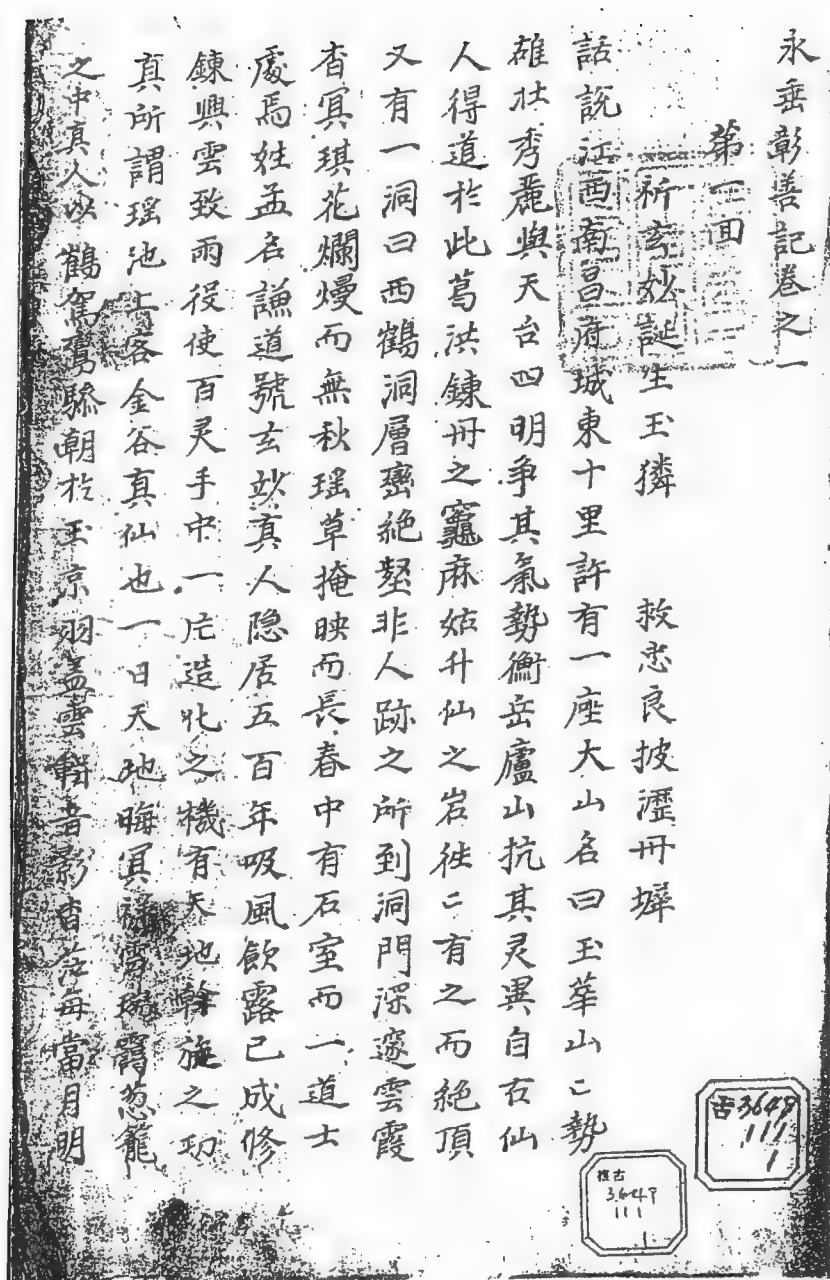 永垂彰善記卷之一
第一回
祈玄妙誕生玉獜 救忠良披瀝丹墀
話說江西南昌府城東十里許有一座大山名曰玉華山二勢
雄壯秀麗與天台四明争其氣勢衡岳廬山抗其灵異自古仙
人得道於此葛洪鍊丹之竈麻姑升仙之岩徃二有之而絶頂
又有一洞曰西鶴洞層巒絶壑非人跡之所到洞門深邃雲霞
杳冥琪花爛熳而無秋瑶草掩映而長春中有石室而一道士
處焉姓孟名謙道號玄妙真人隐居五百年吸風飮露已成修
鍊興雲致雨役使百灵手中一片造化之機有天地斡旋之功
真所謂瑶池上客金谷真仙也一日天地晦冥祿雲靄葱籠
之中真人以鶴駕鸞驂朝於玉京羽盖雲軿音影杳茫每當月明
古3649
111
1
複古
3649
111
1